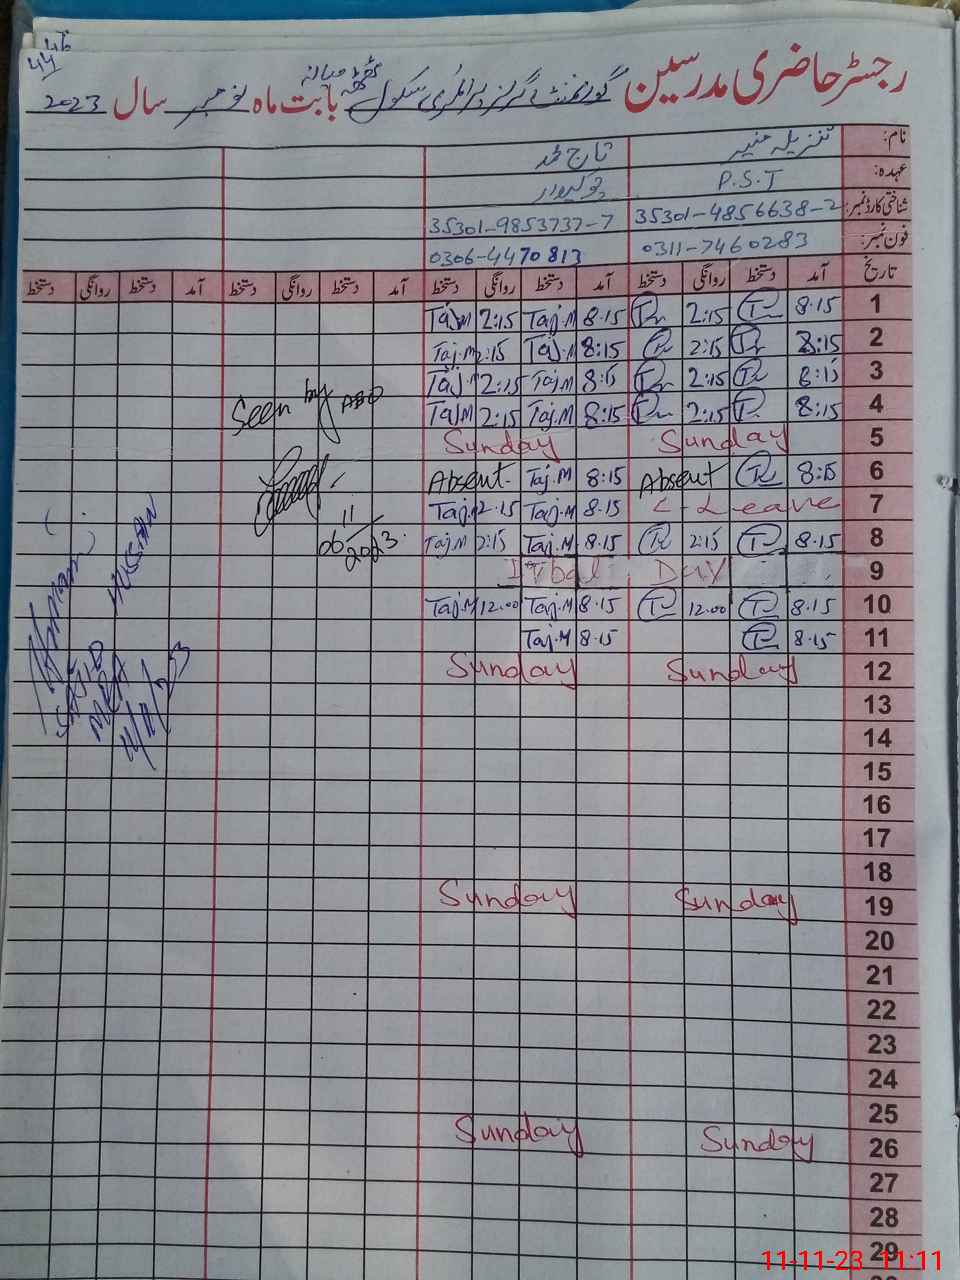 رجسٹر حاضری مدرسین گورنمنٹ گرلز پرائمری سکول ٹھٹھہ میانہ بابت ماہ نومبر سال 2023
نام: تنزیلہ منیر تاج محمد
عہدہ: P.S.T چوکیدار
شناختی کارڈ نمبر: 35301-4856638-2 35301-9853737-7
فون نمبر: 0311-7460283 0306-4470813
تاریخ آمد دستخط روانگی دستخط آمد دستخط روانگی دستخط آمد دستخط روانگی دستخط آمد دستخط روانگی دستخط
1 8:15 2:15 8:15 Taj.M 2:15 Taj.M
2 8:15 2:15 8:15 Taj.M 2:15 Taj.M
3 8:15 2:15 8:15 Taj.M 2:15 Taj.M
4 8:15 2:15 8:15 Taj.M 2:15 Taj.M
5 Sunday Sunday
6 8:15 Absent 8:15 Taj.M Absent
7 C-Leave 8.15 Taj.M 2.15 Taj.M
8 8.15 2:15 8.15 Taj.M 2:15 Taj.M
9 Iqbal Day
10 8.15 12.00 8.15 Taj.M 12.00 Taj.M
11 8.15 8.15 Taj.M
12 Sunday Sunday
13
14
15
16
17
18
19 Sunday Sunday
20
21
22
23
24
25
26 Sunday Sunday
27
28
29
Seen by AEO
06/11/2023
SAJID HUSSAIN
MEA
11/11/23
11-11-23 11:11